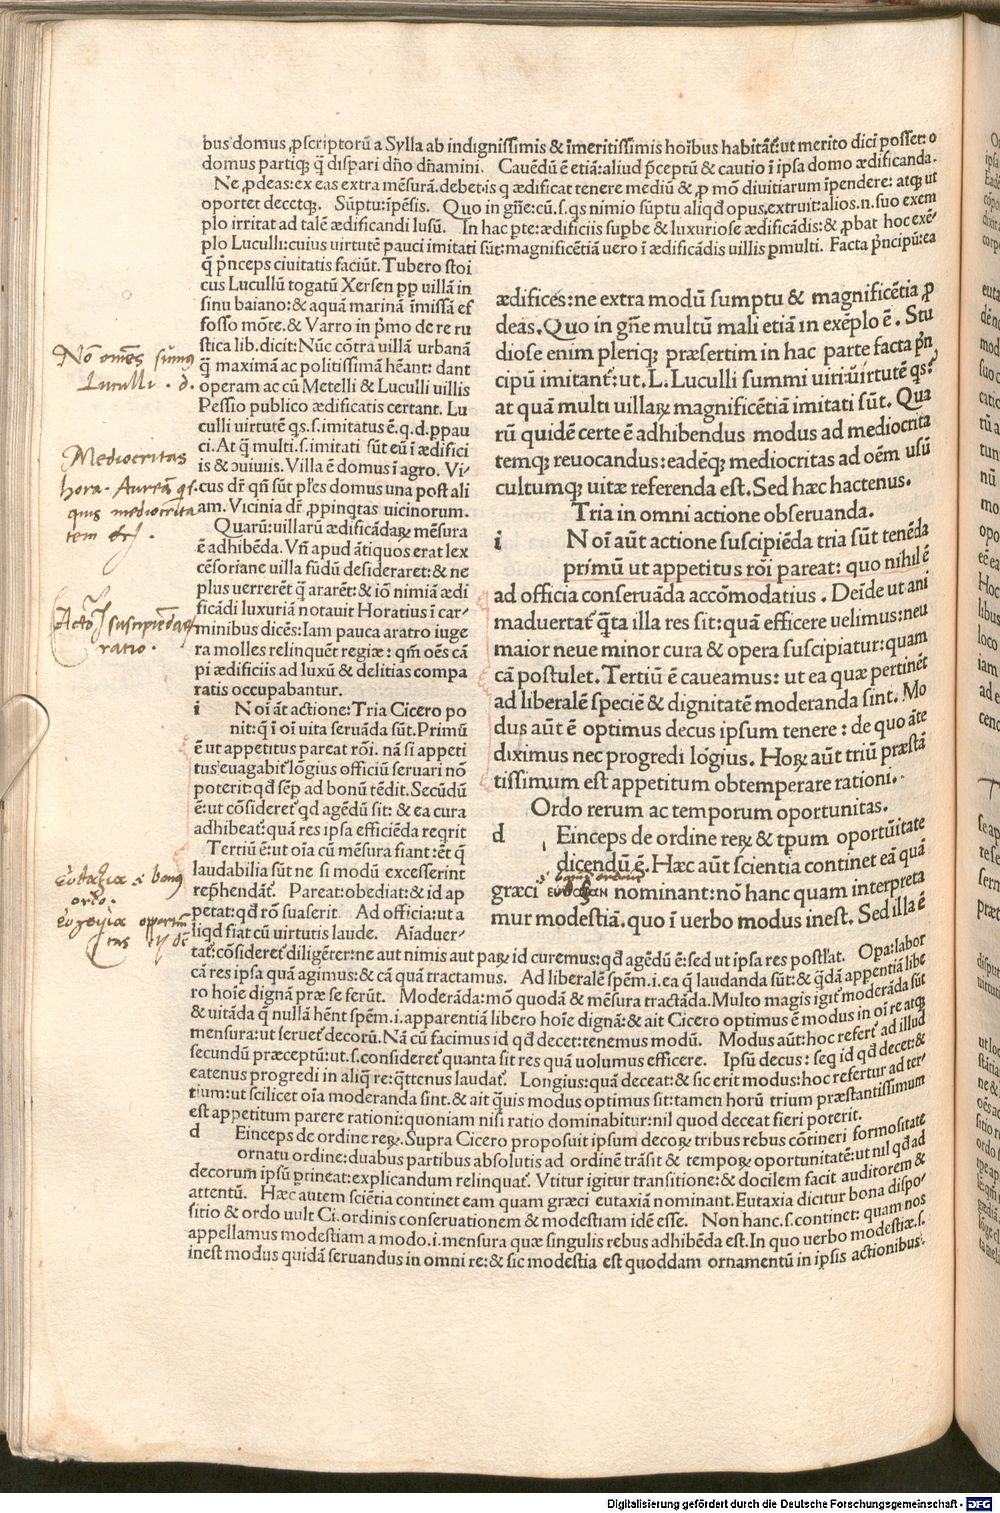 bus domus, ꝓscriptorū a Sylla ab indignissimis & īmeritissimis hoībus habitāt᷑:ut merito dici posset: o
domus partiqꝫ q̄ dispari dn̄o dn̄amini. Cauēdū ē etiā:aliud p̄ceptū & cautio ī ipsa domo ædificanda.
Ne ꝓdeas:ex eas extra mēsurā.debet.is q ædificat tenere mediū & ꝓ mō diuitiarum īpendere: atqꝫ ut
oportet decetqꝫ. Sūptu:īpēsis. Quo in gn̄e:cū.s.qs nimio sūptu aliqd opus.extruit:alios.n.suo exem
plo irritat ad talē ædificandi lusū. In hac pte:ædificiis supbe & luxuriose ædificādis:& ꝓbat hoc exē/
plo Luculli:cuius virtutē pauci imitati sūt:magnificētiā uero ī ædificādis uillis pmulti. Facta p̄ncipū:ea
q̄ p̄nceps ciuitatis faciūt. Tubero stoi
cus Lucullū togatū Xersen pp uillā in
sinu baiano:& aquā marinā īmissā ef
fosso mōte.& Varro in p̄mo de re ru
stica lib.dicit:Nūc cōtra uillā urbanā
q̄ maximā ac politissimā hēant: dant
operam ac cū Metelli & Luculli uillis
Pessio publico ædificatis certant. Lu
culli uirtutē qs.s.imitatus ē.q.d.ppau
ci.At q̄ multi.s.imitati sūt eū ī ædifici
is & ɔuiuiis. Villa ē domus ī agro. Vi/
cus dr̄ qn̄ sūt pl̄es domus una post ali
am. Vicinia dr̄ ꝓpinqtas uicinorum.
Quarū:uillarū ædificādaꝝ mēsura
ē adhibēda. Vn̄ apud ātiquos erat lex
cēsoriane uilla fūdū desideraret:& ne
plus uerrerēt q̄ ararēt:& iō nimiā ædi
ficādi luxuriā notauit Horatius ī car/
minibus dicēs:Iam pauca aratro iuge
ra molles relinquēt regiæ: qm̄ oēs cā
pi ædificiis ad luxū & delitias compa
ratis occupabantur.
i N oī āt actione: Tria Cicero po
nit:q̄ ī oī uita seruāda sūt. Primū
ē ut appetitus pareat rōi. nā si appeti
tus euagabit᷑ lōgius officiū seruari nō
poterit:qd sēp ad bonū tēdit. Secūdū
ē:ut cōsideret᷑ qd agēdū sit: & ea cura
adhibeat᷑:quā res ipsa efficiēda reqrit
Tertiū ē:ut oīa cū mēsura fiant:ēt q̄
laudabilia sūt ne si modū excesserint
rep̄hendāt᷑. Pareat:obediat:& id ap
petat:qd rō suaserit. Ad officia:ut a
liqd fiat cū uirtutis laude. Aīaduer/
tat᷑:cōsideret᷑ diligēter:ne aut nimis aut paꝝ id curemus:qd agēdū ē:sed ut ipsa res postl̄at. Opa:labor
cā res ipsa quā agimus:& cā quā tractamus. Ad liberalē spēm.i.ea q̄ laudanda sūt:& q̄dā appentiā libe
ro hoīe dignā præ se ferūt. Moderāda:mō quodā & mēsura tractāda.Multo magis igit᷑ moderāda sūt
& uitāda q̄ nullā hēnt spēm.i.apparentiā libero hoīe dignā:& ait Cicero optimus ē modus in oī re atqꝫ
mensura:ut seruet᷑ decorū.Nā cū facimus id qd decet:tenemus modū. Modus aūt:hoc refert᷑ ad illud
secundū præceptū:ut.s.consideret᷑ quanta sit res quā uolumus efficere. Ipsū decus: seq id qd decet:&
eatenus progredi in aliq re:q̄ttenus laudat᷑. Longius:quā deceat:& sic erit modus:hoc refertur ad ter/
tium:ut scilicet oīa moderanda sint.& ait q̄uis modus optimus sit:tamen horū trium præstantissimum
est appetitum parere rationi:quoniam nisi ratio dominabitur:nil quod deceat fieri poterit.
d Einceps de ordine reꝝ.Supra Cicero proposuit ipsum decoꝝ tribus rebus cōtineri formositate
ornatu ordine:duabus partibus absolutis ad ordinē trāsit & tempoꝝ oportunitatē:ut nil qd ad
decorum ipsū ꝑtineat:explicandum relinquat᷑. Vtitur igitur transitione:& docilem facit auditorem &
attentū. Hæc autem sciētia continet eam quam græci eutaxiā nominant.Eutaxia dicitur bona dispo/
sitio & ordo uult Ci.ordinis conseruationem & modestiam idē esse. Non hanc.s.continet: quam nos
appellamus modestiam a modo.i.mensura quæ singulis rebus adhibēda est.In quo uerbo modestiæ.s.
inest modus quidā seruandus in omni re:& sic modestia est quoddam ornamentū in ipsis actionibus.
ædifices:ne extra modū sumptu & magnificētia ꝓ
deas.Quo in gn̄e multū mali etiā in exēplo ē. Stu
diose enim pleriqꝫ præsertim in hac parte facta p̄n
cipū imitant᷑:ut.L.Luculli summi uiri:ūirtutē qs?
at quā multi uillaꝝ magnificētiā imitati sūt. Qua
rū quidē certe ē adhibendus modus ad mediocrita
temqꝫ reuocandus:eadēqꝫ mediocritas ad oēm usū
cultumqꝫ uitæ referenda est. Sed hæc hactenus.
Tria in omni actione obseruanda.
i N oī aūt actione suscipiēda tria sūt tenēda
prímū ut appetitus rōi pareat: quo nihil ē
ad officia conseruāda accōmodatius. Deīde ut ani
maduertat᷑ q̄ta illa res sit:quā efficere uelimus:neu
maior neue minor cura & opera suscipiatur:quam
cā postulet. Tertiū ē caueamus: ut ea quæ pertinēt
ad liberalē speciē & dignitatē moderanda sint. Mo
dus aūt ē optimus decus ipsum tenere: de quo āte
diximus nec progredi lōgius. Hoꝝ aūt triū præstā
tissimum est appetitum obtemperare rationi.
Ordo rerum ac temporum oportunitas.
d Einceps de ordine reꝝ & tpum oportūitate
dicendū ē. Hæc aūt scientia continet eā quā
bonus ordinis
græci ΕΥΘΑΞΙΑΝ nominant:nō hanc quam interpreta
mur modestiā.quo ī uerbo modus inest. Sed illa ē
Nō omēs sum9
Luculli. d.
Mediocritas
hora. Aureā qs
quis mediocrita
tem &c.
Actōis suscipiēdae
ratio.
ευθαξια s bonus
ordo.
ευχειρια oportu
tas
Digitalisierung gefördert durch die Deutsche Forschungsgemeinschaft - DFG